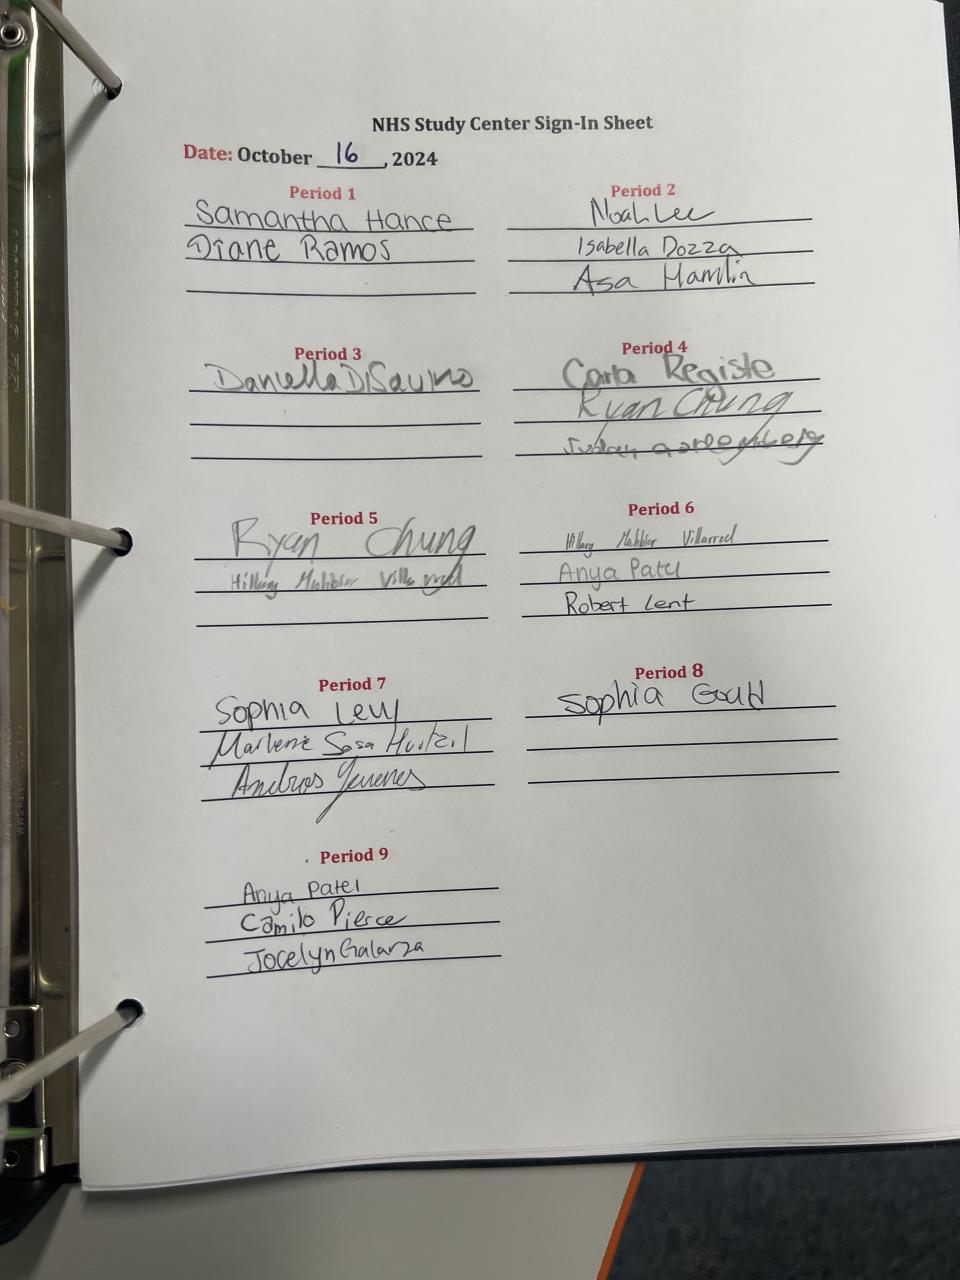 NHS Study Center Sign-In Sheet
Date: October 16, 2024
Period 1
Samantha Hance
Diane Ramos
Period 2
Noah Lee
Isabella Dozza
Asa Hamlin
Period 3
Daniella DiSavino
Period 4
Carla Registe
Ryan Chung
Period 5
Ryan Chung
Hillary
Period 6
Hillary Villarreal
Anya Patel
Robert Lent
Period 7
Sophia Levy
Marlene Sosa
Andros
Period 8
Sophia Gould
Period 9
Anya Patel
Camilo Pierce
Jocelyn Galarza